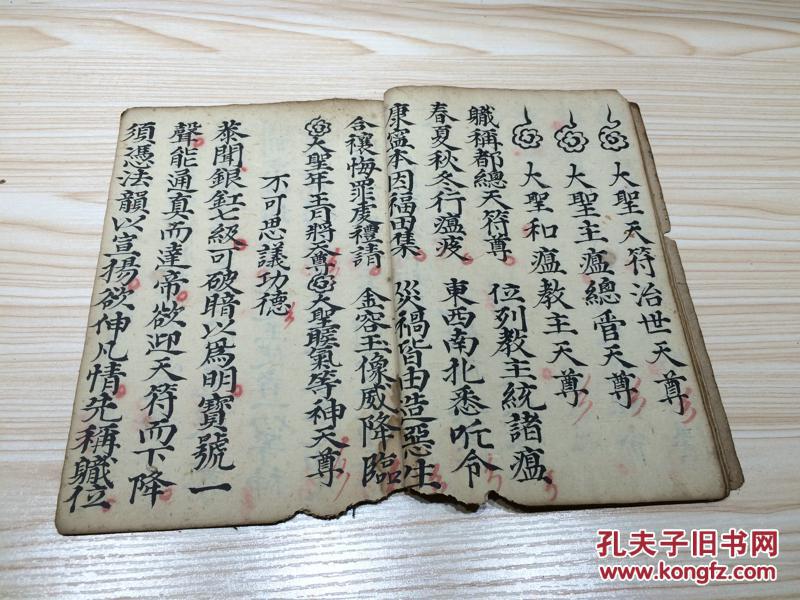 大聖天符治世天尊
大聖主瘟總管天尊
大聖和瘟教主天尊
職稱都總天符尊 位列教主統諸瘟
春夏秋冬行瘟疫 東西南北悉咜令
康寍本因福田集 災禍皆由造惡生
合禳悔罪虔禮請 金容玉像威降臨
大聖年王月將天尊 大聖暖氣等神天尊
不可思議功德
恭聞銀釭七級可破暗以為明寶號一
聲能通真而達帝欲迎天符而下降
須憑法韻以宣揚欲伸凡情先稱職位
孔夫子旧书网
www.kongfz.com